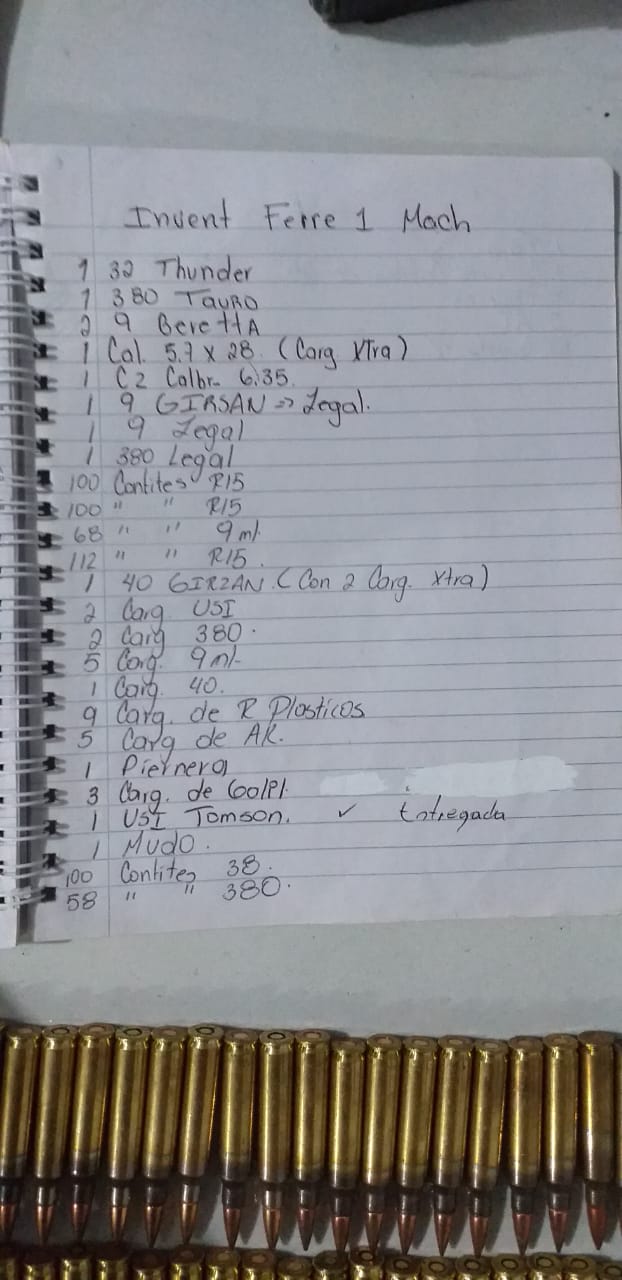 Invent Ferre 1 Mach
1 32 Thunder
1 380 TAURO
2 9 BerettA
1 Cal. 5.7 x 28. (Carg XTra)
1 C2 Calbr. 6.35
1 9 GIRSAN => Legal.
1 9 Legal
1 380 Legal
100 Contites R15
100 " " R15
68 " " 9 ml.
112 " " R15.
1 40 GIRZAN. (Con 2 Carg. Xtra)
2 Carg USI
2 Carg 380.
5 Carg. 9 ml-
1 Carg. 40.
9 Carg. de R Plasticos
5 Carg de AK.
1 Piernera
3 Carg. de
1 USI Tomson. ✓ Entregada
1 Mudo.
100 Contites 38.
58 " " 380.